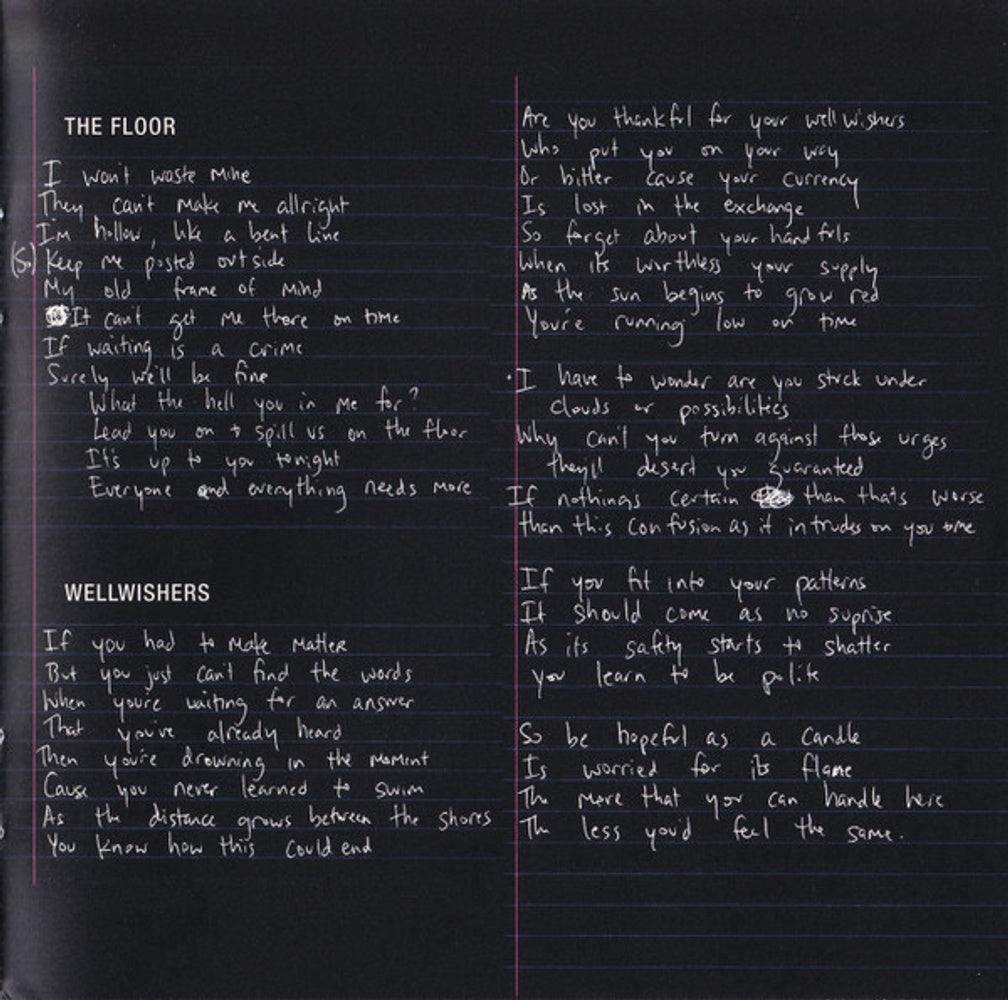 THE FLOOR
I won't waste mine
They can't make me allright
I'm hollow, like a bent line
(So) Keep me posted outside
My old frame of mind
It can't get me there on time
If waiting is a crime
Surely we'll be fine
What the hell you in me for?
Lead you on to spill us on the floor
It's up to you tonight
Everyone and everything needs more
WELLWISHERS
If you had to make matter
But you just can't find the words
When you're waiting for an answer
That you've already heard
Then you're drowning in the moment
Cause you never learned to swim
As the distance grows between the shores
You know how this could end
Are you thankful for your wellwishers
Who put you on your way
Or bitter cause your currency
Is lost in the exchange
So forget about your handfuls
When its worthless your supply
As the sun begins to grow red
You're running low on time
I have to wonder are you stuck under
clouds or possibilities
Why can't you turn against those urges
they'll desert you guaranteed
If nothings certain than thats worse
than this confusion as it intrudes on you
If you fit into your patterns
It should come as no suprise
As its safety starts to shatter
you learn to be polite
So be hopeful as a candle
Is worried for its flame
The more that you can handle here
The less you'd feel the same.